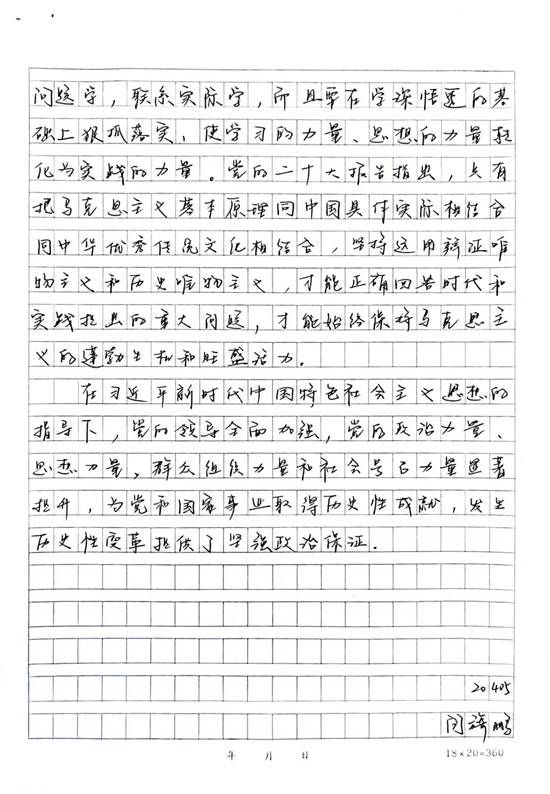 问题学，联系实际学，而且要在学深悟透的基
础上狠抓落实，使学习的力量、思想的力量转
化为实践的力量。党的二十大报告指出，只有
把马克思主义基本原理同中国具体实际相结合
同中华优秀传统文化相结合，坚持运用辩证唯
物主义和历史唯物主义，才能正确回答时代和
实践提出的重大问题，才能始终保持马克思主
义的蓬勃生机和旺盛活力。
在习近平新时代中国特色社会主义思想的
指导下，党的领导全面加强，党的政治力量、
思想力量，群众组织力量和社会号召力量显著
提升，为党和国家事业取得历史性成就，发生
历史性变革提供了坚强政治保证.
20405
闫 鹏
年 月 日
18×20=360